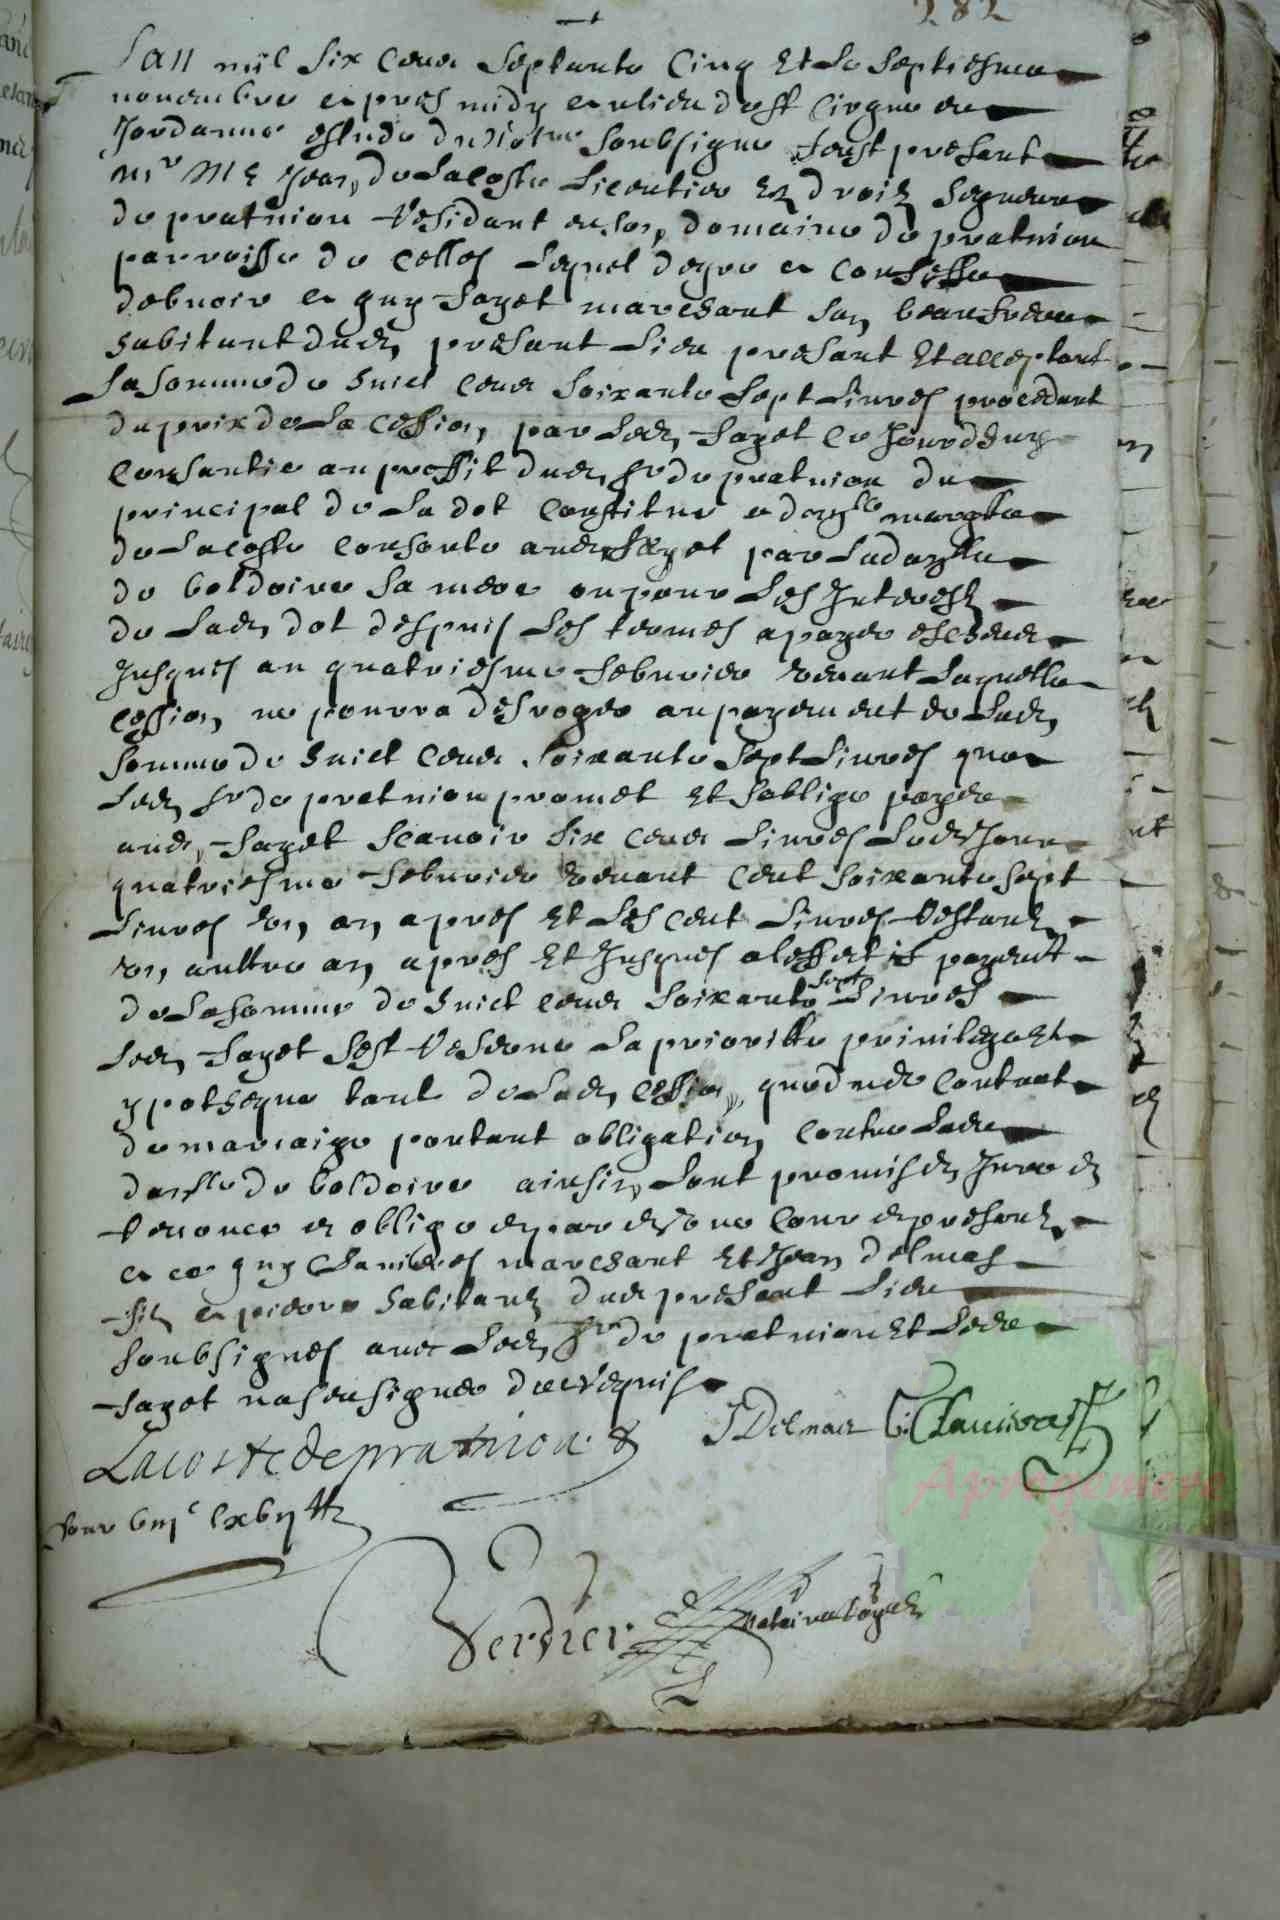 282
Lan mil six cens septante cinq et le septiesme
novembre apres midy au lieu de st cirgue de
Jordanne estude du notre soubsigne feust presant
mr Me Jean de Lacoste Licentier ez droiz segneur
de pratniou residant en son domaine de pratniou
parroisse de celles Lequel de gre a confesse
debvoir a guy faget marchant son beaufrere
habitant dud presant Lieu presant et acceptant
La somme de huict cens soixante sept Livres procedant
du prix de La cession par Led faget ce jourdhuy
consantie au proffit dud sr de pratniou du
principal de La dot constitue a doyslle margte
de Lacoste consorte aud faget par La doyslle
de boldoire sa mere ou pour Les Interestz
de Lad dot despuis Les termes a payer escheus
jusques au quatriesme febvrier venant Laquelle
cession ne pourra desroger au payement de Lad
somme de huict cens soixante sept Livres que
Led sr de pratniou promet et soblige payer
aud faget scavoir six cens Livres Led jour
quatriesme febvrier venant cent soixante sept
Livres un an apres et Les cent Livres restantz
un aultre an apres et jusques a leffectif payemt
de La somme de huict cens soixante sept Livres
Led faget sest reserve La prioritte privilege et
ypotheque tant de Lad cession que dud contract
de mariaige portant obligation contre Lad
doyslle de boldoire ainsin Lont promis Jure
renonce et oblige presantz
a ce guy Clavieres marchant et Jean delmas
filz a pierre habitantz dud presant Lieu
soubsignes avec Led sr de pratniou et Led
faget na sceu signer de ce requis
Lacoste de pratniou
J Delmas G. Clavieres
pour viijc lxvij tt
Verdier notaire royal
Aprogemere